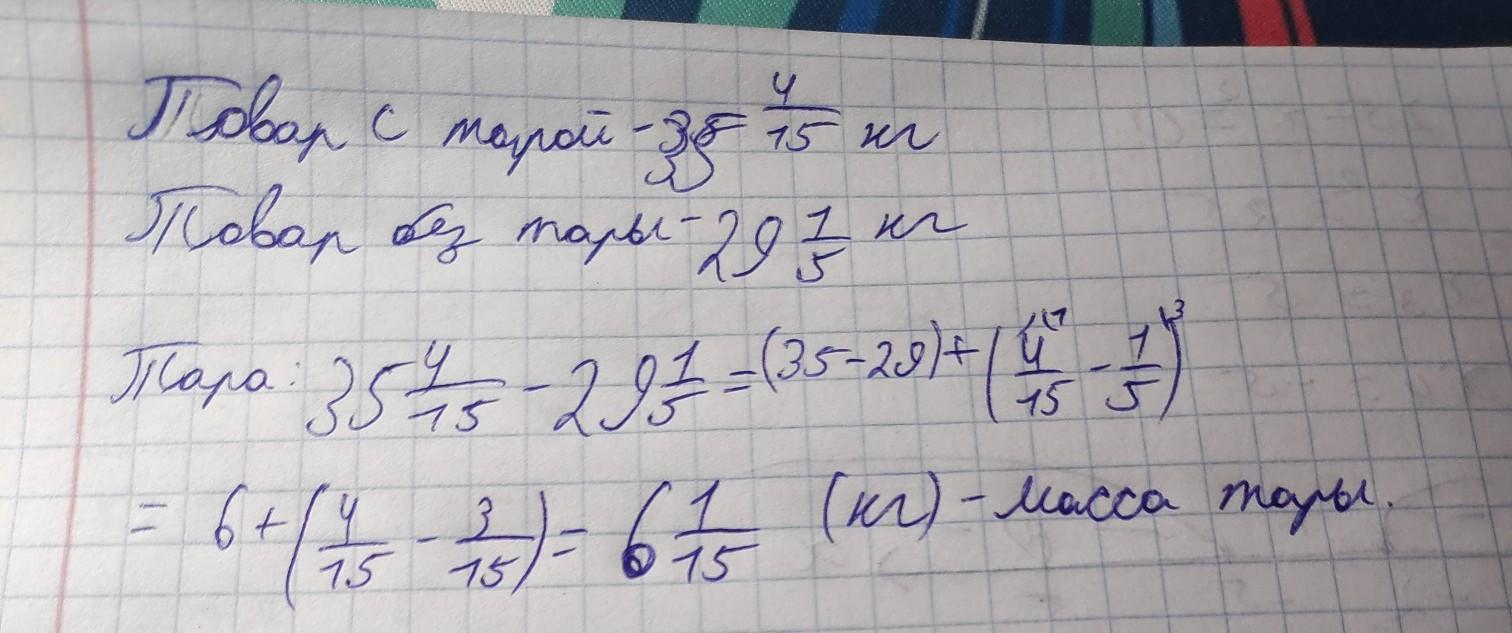 Товар с тарой - 35 4/15 кг
Товар без тары - 29 1/5 кг
Тара: 35 4/15 - 29 1/5 = (35 - 29) + (4/15 - 1/5)
= 6 + (4/15 - 3/15) = 6 1/15 (кг) - масса тары.